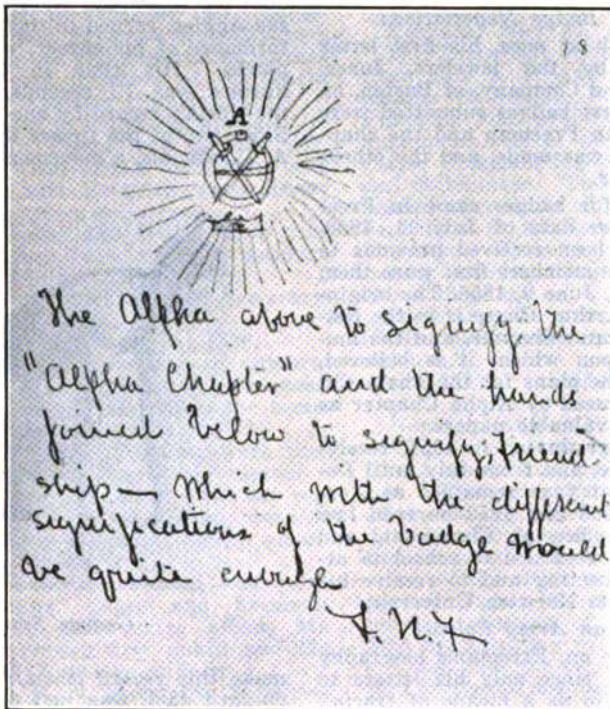 18
A
The Alpha above to signify the
"Alpha Chapter" and the hands
joined below to signify, friend
ship — which with the different
significations of the badge would
be quite enough